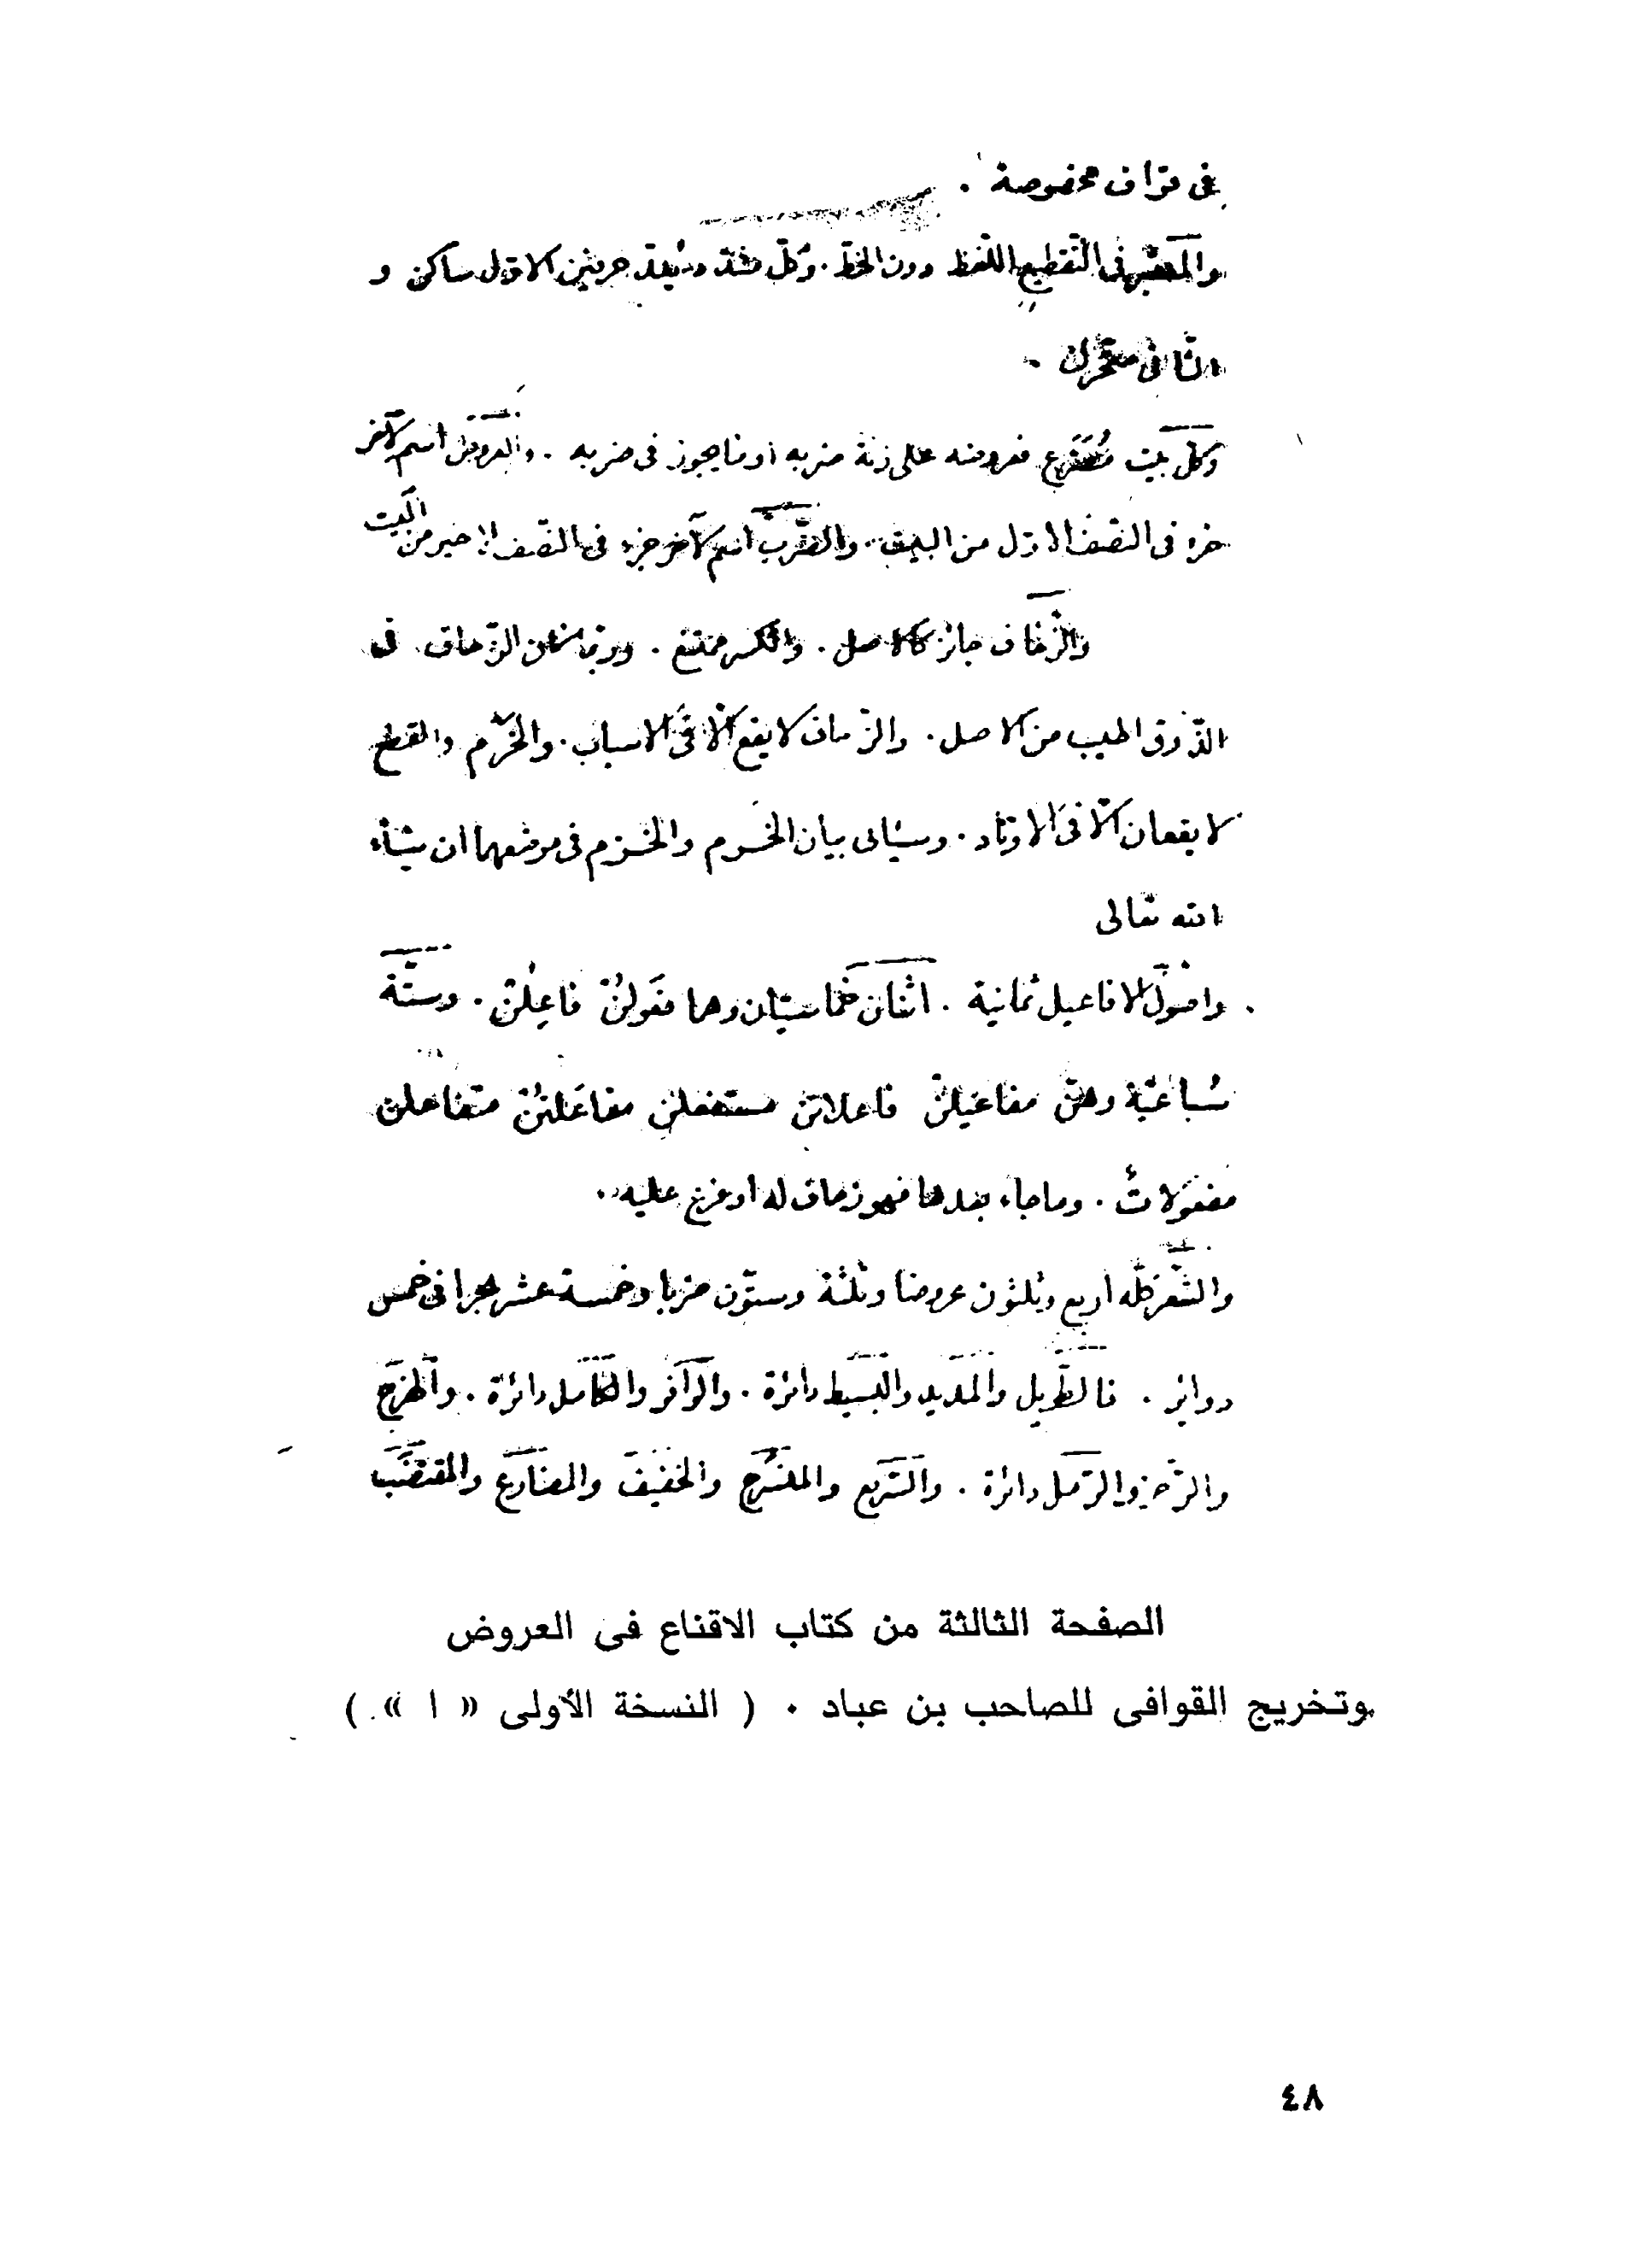 فى قواف مخصوصة .
والمعتبر فى التّقطيع اللّفظ دون الخطّ . وكلّ مشدّد يُعدّ حرفين الاوّل ساكن و
الثّانى متحرّك .
وكلّ بيت مُصَرَّع فعروضه على زنة ضربه او ما يجوز فى ضربه . والعروض اسم لآخر
جزء فى النّصف الاوّل من البيت . والضّرب اسم لآخر جزء فى النّصف الاخير من البيت
والزّحاف جائز كالاصل . والكسر ممتنع . وربّما كان الزّحاف فى
الذّوق اطيب من الاصل . والزّحاف لا يقع الّا فى الاسباب . والخَرْم والقطع
لا يقعان الّا فى الاوتاد . وسيأتى بيان الخرم والخزم فى موضعهما ان شآء
الله تعالى
. واصُول الافاعيل ثمانية . اثنان خماسيّان وهما فَعولُنْ فاعِلُنْ . وستّة
سُباعيّة وهىّ مفاعيلن فاعلاتن مستفعلن مفاعَلَتُنْ متفاعلن
مفعولاتُ . وما جاء بعدها فهو زحاف له او فرع عليه .
والشّعر كلّه اربع وثلثون عروضا وثلثة وستّون ضربا وخمسة عشر بحرا فى خمس
دوائر . فالطّويل والمديد والبسيط دائرة . والوافر والكامل دائرة . والهزج
والرّجز والرّمل دائرة . والسّريع والمنسرح والخفيف والمضارع والمقتضب
الصفحة الثالثة من كتاب الاقناع فى العروض
وتخريج القوافى للصاحب بن عباد . ( النسخة الأولى « ا » . )
٤٨